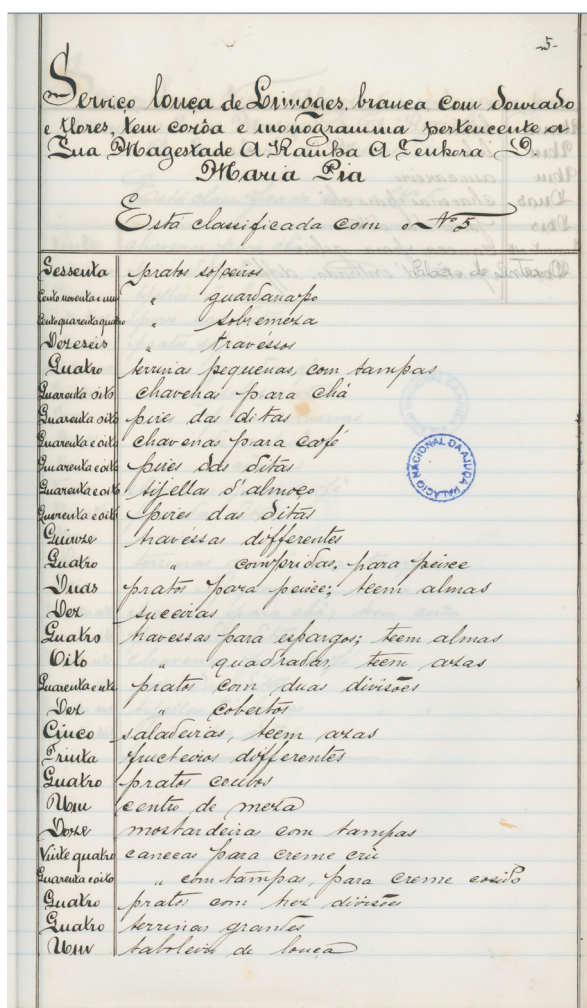 -5-
Serviço louça de Limoges, branca com dourado
e flores, tem corôa e monogramma pertencente a
Sua Magestade A Rainha A Senhora D.
Maria Pia
Está classificada com o Nº 5
Sessenta pratos sopeiros
Cento noventa e um " guardanapo
Cento quarenta quatro " sobremeza
Dezeseis " travéssos
Quatro terrinas pequenas, com tampas
Quarenta oito chavenas para chá
Quarenta oito pires das ditas
Quarenta e oito chavenas para café
Quarenta e oito pires das ditas
Quarenta e oito tigellas d'almoço
Quarenta e oito pires das ditas
Quinze travéssas differentes
Quatro " compridas, para peixe
Duas pratos para peixe; teem almas
Dez
Quatro travessas para espargos; teem almas
Oito " quadradas, teem azas
pratos com duas divisões
Dez " cobertos
Cinco saladeiras, teem azas
Trinta fructeiros differentes
Quatro pratos covos
Um centro de meza
Doze mostardeiras com tampas
Vinte quatro canecas para creme crú
Quarenta e oito " com tampas, para creme cosido
Quatro pratos com trez divisões
Quatro terrinas grandes
Um taboleiro de louça
PALACIO NACIONAL DA AJUDA